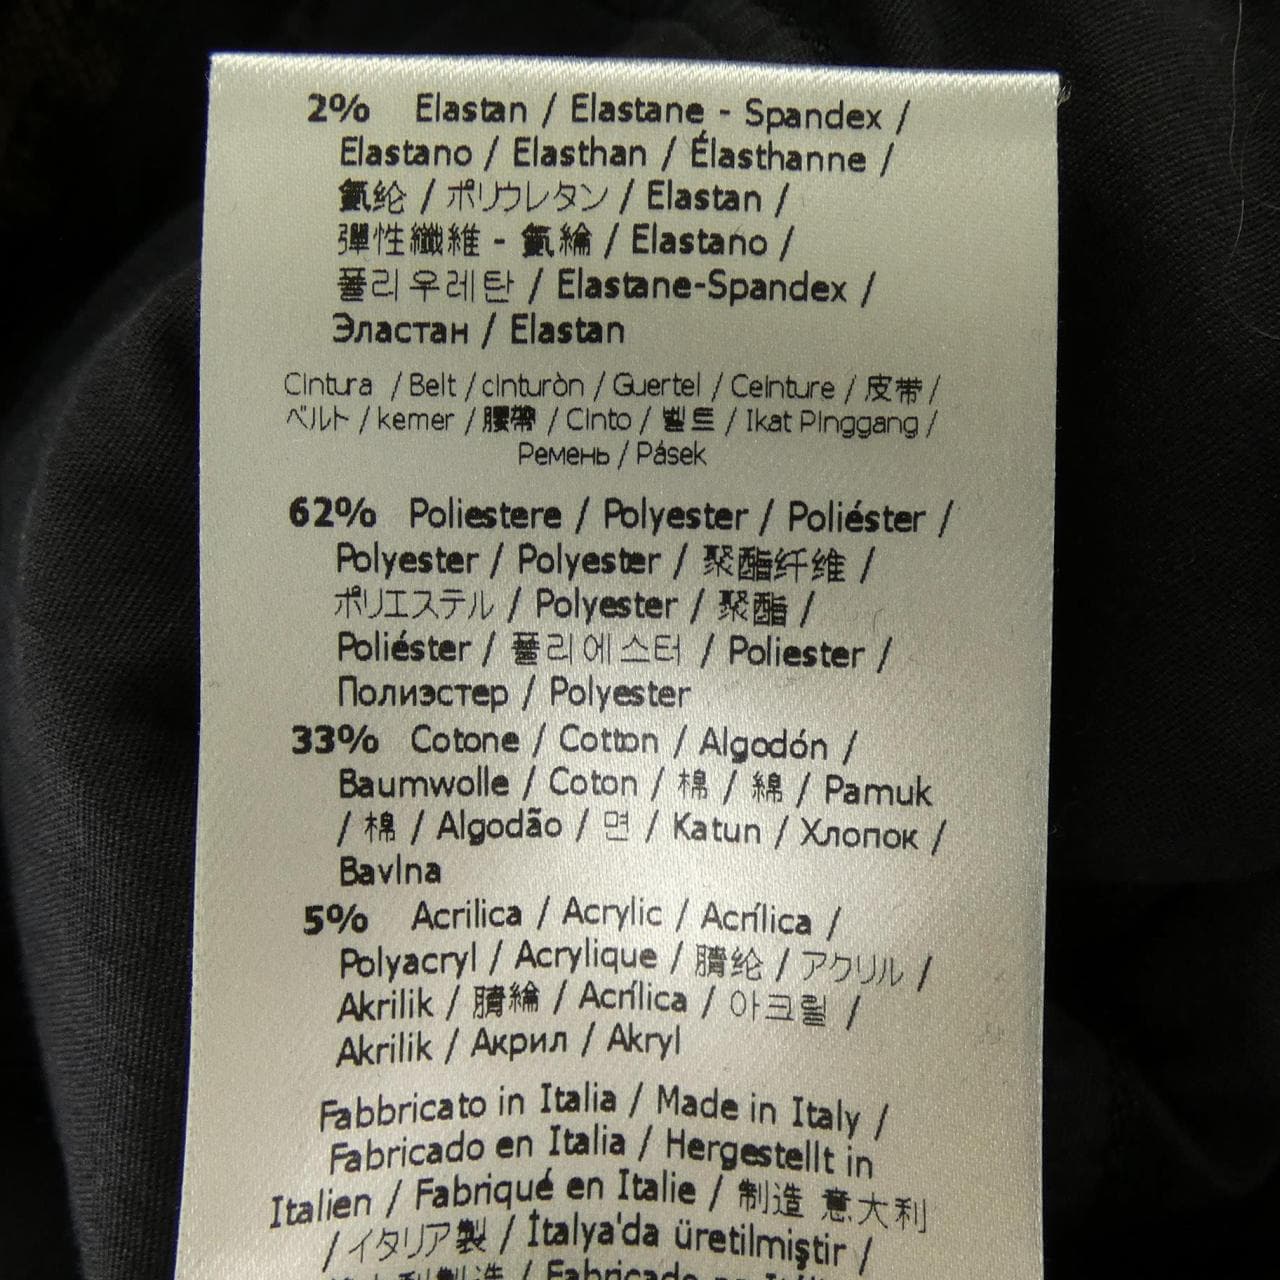 2% Elastan / Elastane - Spandex /
Elastano / Elasthan / Élasthanne /
氨纶 / ポリウレタン / Elastan /
彈性纖維 - 氨綸 / Elastano /
폴리우레탄 / Elastane-Spandex /
Эластан / Elastan
Cintura / Belt / cinturòn / Guertel / Ceinture / 皮帶 /
ベルト / kemer / 腰帶 / Cinto / 벨트 / Ikat Pinggang /
Ремень / Pásek
62% Poliestere / Polyester / Poliéster /
Polyester / Polyester / 聚酯纤维 /
ポリエステル / Polyester / 聚酯 /
Poliéster / 폴리에스터 / Poliester /
Полиэстер / Polyester
33% Cotone / Cotton / Algodón /
Baumwolle / Coton / 棉 / 綿 / Pamuk
/ 棉 / Algodão / 면 / Katun / Хлопок /
Bavlna
5% Acrilica / Acrylic / Acrílica /
Polyacryl / Acrylique / 腈纶 / アクリル /
Akrilik / 腈綸 / Acrílica / 아크릴 /
Akrilik / Акрил / Akryl
Fabbricato in Italia / Made in Italy /
Fabricado en Italia / Hergestellt in
Italien / Fabriqué en Italie / 制造 意大利
/ イタリア製 / İtalya'da üretilmiştir /
意大利製造 / Fabricado na Itália